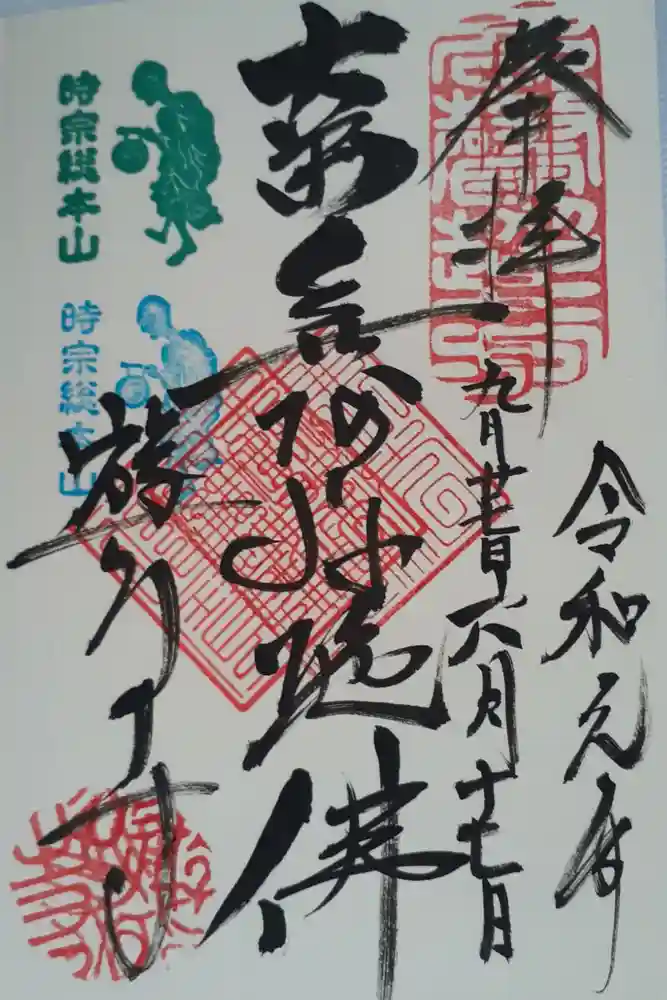 奉拝
令和元年
九月廿七日六月十七日
南無阿弥陀佛
遊行寺
時宗総本山
時宗総本山